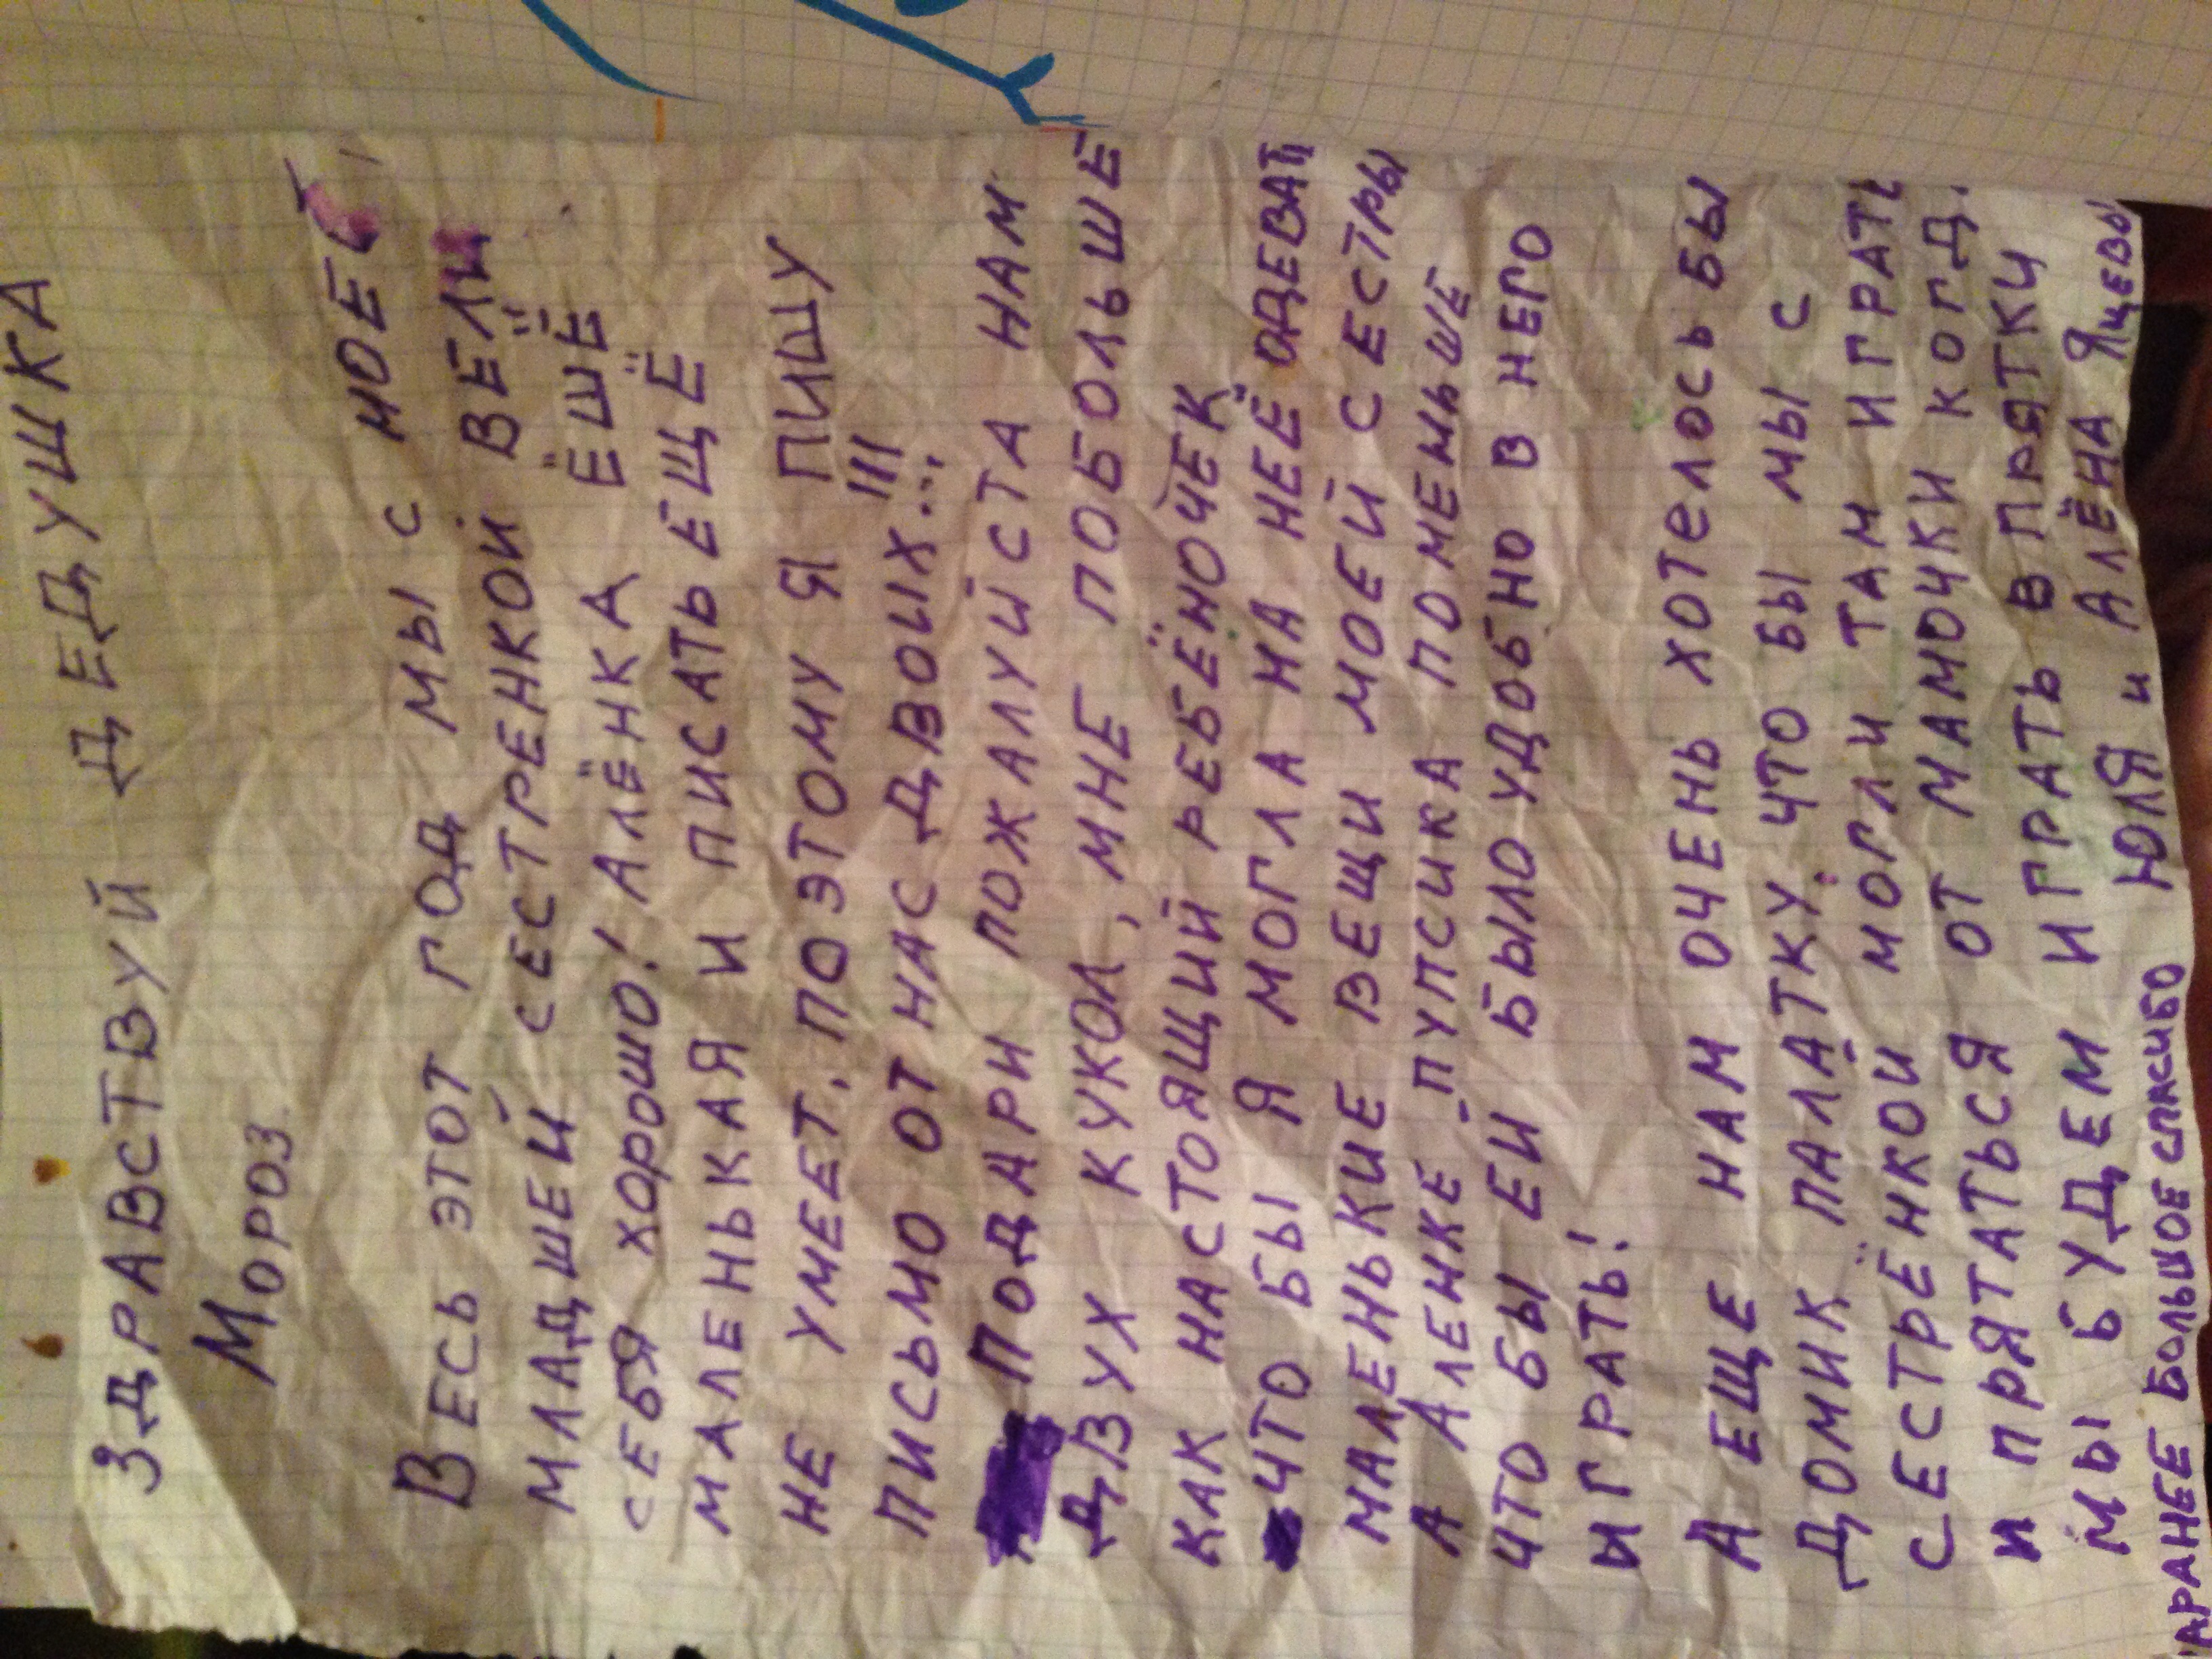 ЗДРАВСТВУЙ ДЕДУШКА
МОРОЗ
ВЕСЬ ЭТОТ ГОД МЫ С МОЕЙ
МЛАДШЕЙ СЕСТРЕНКОЙ ВЕЛИ
СЕБЯ ХОРОШО! АЛЁНКА ЁЩЁ
МАЛЕНЬКАЯ И ПИСАТЬ ЕЩЁ
НЕ УМЕЕТ, ПОЭТОМУ Я ПИШУ
ПИСЬМО ОТ НАС ДВОИХ...!!!
ПОДАРИ ПОЖАЛУЙСТА НАМ
ДВУХ КУКОЛ, МНЕ ПОБОЛЬШЕ
КАК НАСТОЯЩИЙ РЕБЁНОЧЕК
ЧТО БЫ Я МОГЛА НА НЕЁ ОДЕВАТЬ
МАЛЕНЬКИЕ ВЕЩИ МОЕЙ СЕСТРЫ
А АЛЕНКЕ - ПУПСИКА ПОМЕНЬШЕ
ЧТО БЫ ЕЙ БЫЛО УДОБНО В НЕГО
ИГРАТЬ!
А ЕЩЕ НАМ ОЧЕНЬ ХОТЕЛОСЬ БЫ
ДОМИК ПАЛАТКУ, ЧТО БЫ МЫ С
СЕСТРЁНКОЙ МОГЛИ ТАМ ИГРАТЬ
И ПРЯТАТЬСЯ ОТ МАМОЧКИ КОГД
МЫ БУДЕМ ИГРАТЬ В ПРЯТКИ
АРАНЕЕ БОЛЬШОЕ СПАСИБО ЮЛЯ и АЛЁНА ЯЦЕВЫ